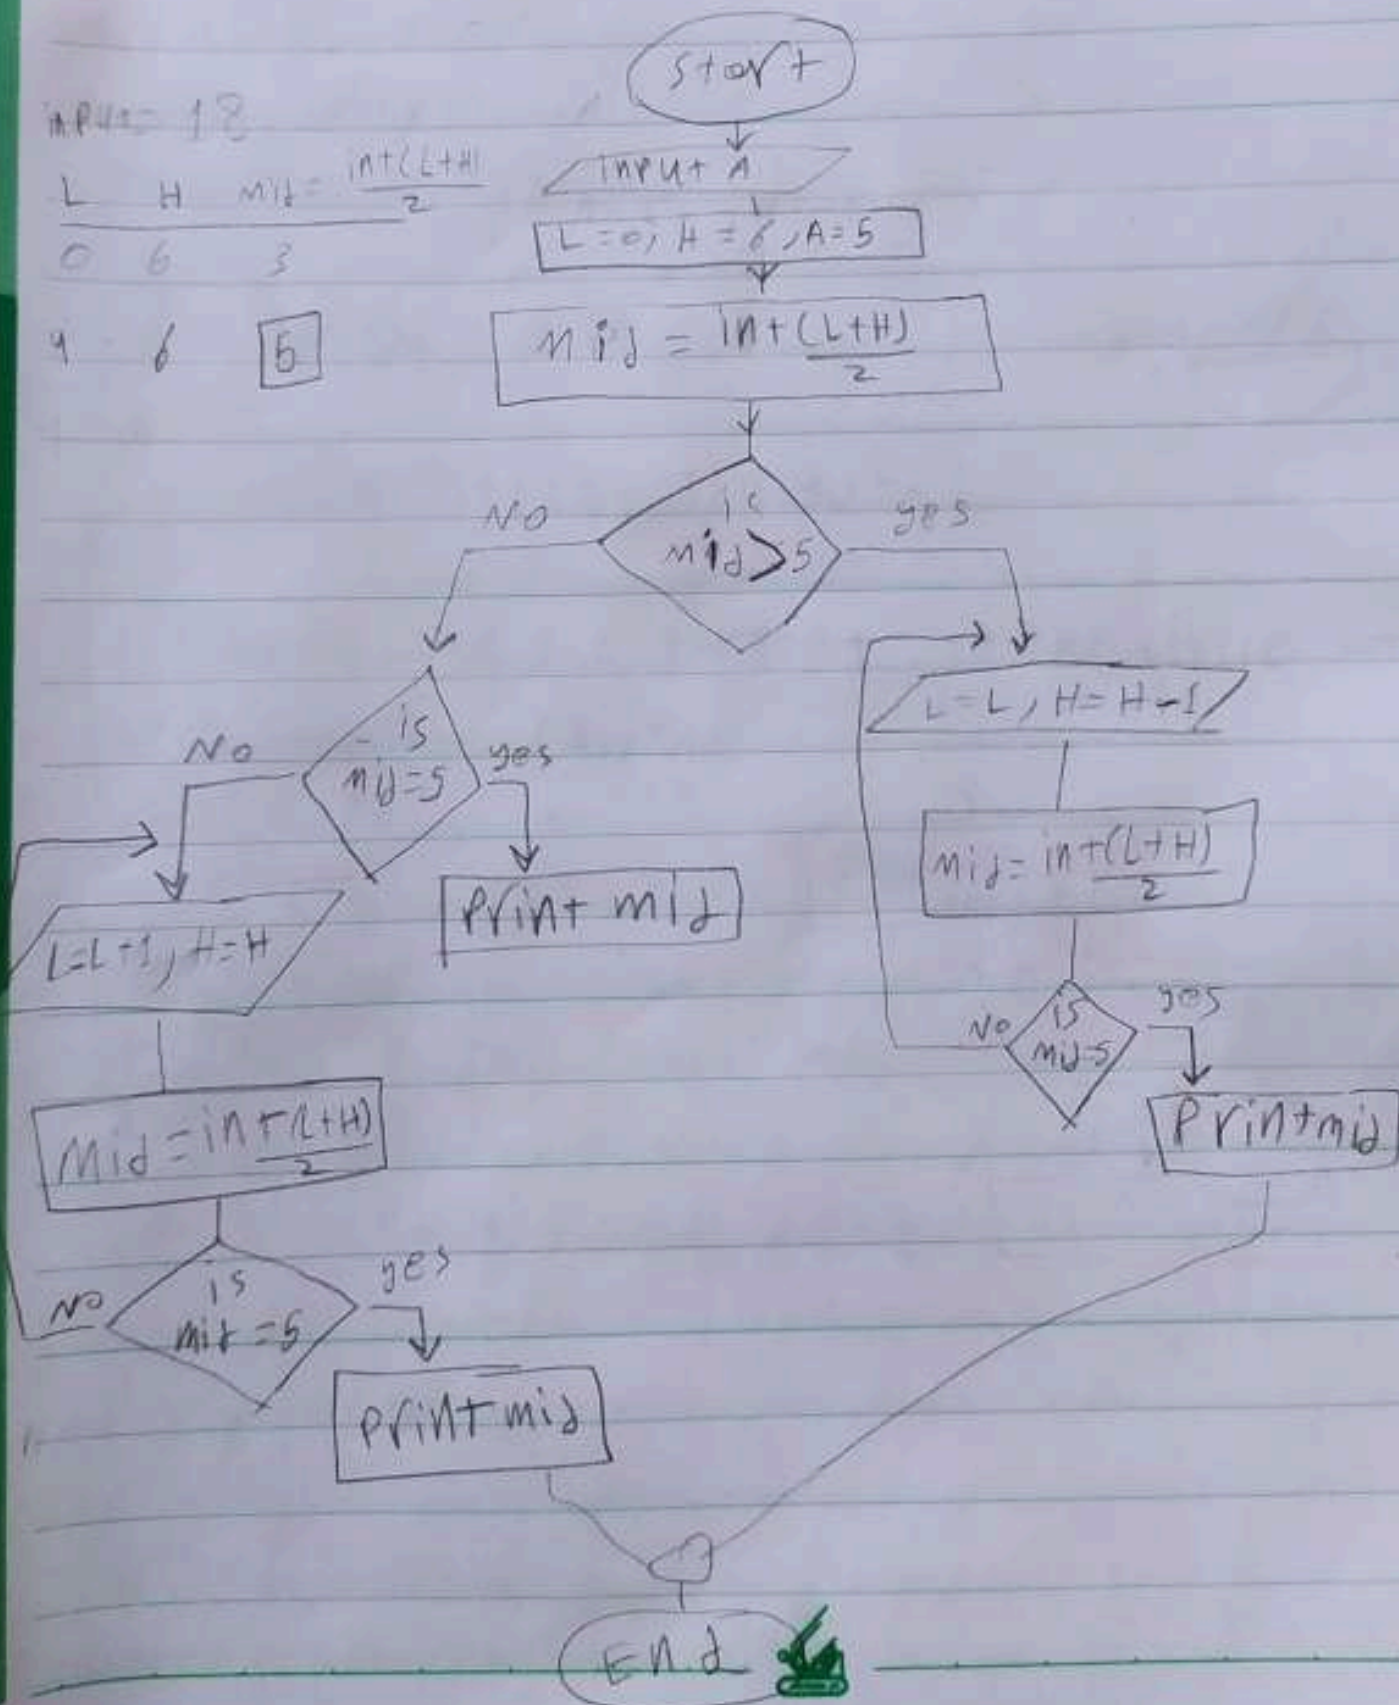 Start
input = 18
L H Mid = int(L+H)/2
0 6 3
4 6 5
input A
L=0, H=6, A=5
Mid = int(L+H)/2
is
mid>5
No
yes
is
mid=5
No
yes
Print mid
L=L+1, H=H
Mid=int(L+H)/2
is
mid=5
No
yes
Print mid
L=L, H=H-1
Mid=int(L+H)/2
is
Mid=5
No
yes
Print mid
End